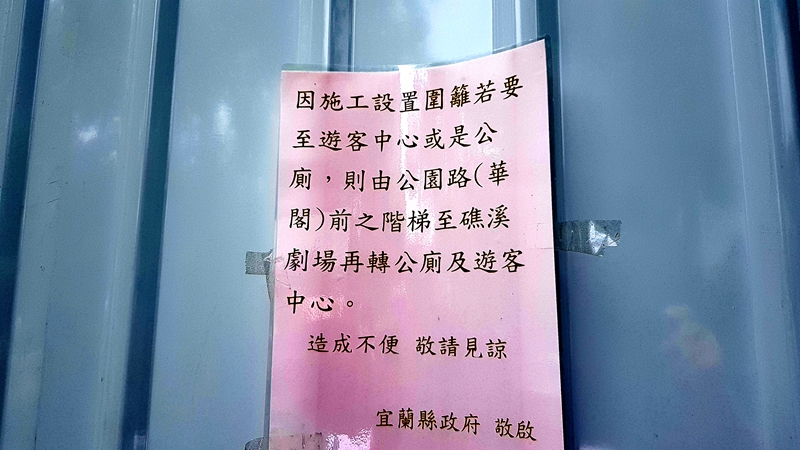 因施工設置圍籬若要
至遊客中心或是公
廁，則由公園路(華
閣)前之階梯至礁溪
劇場再轉公廁及遊客
中心。
造成不便 敬請見諒
宜蘭縣政府 敬啟